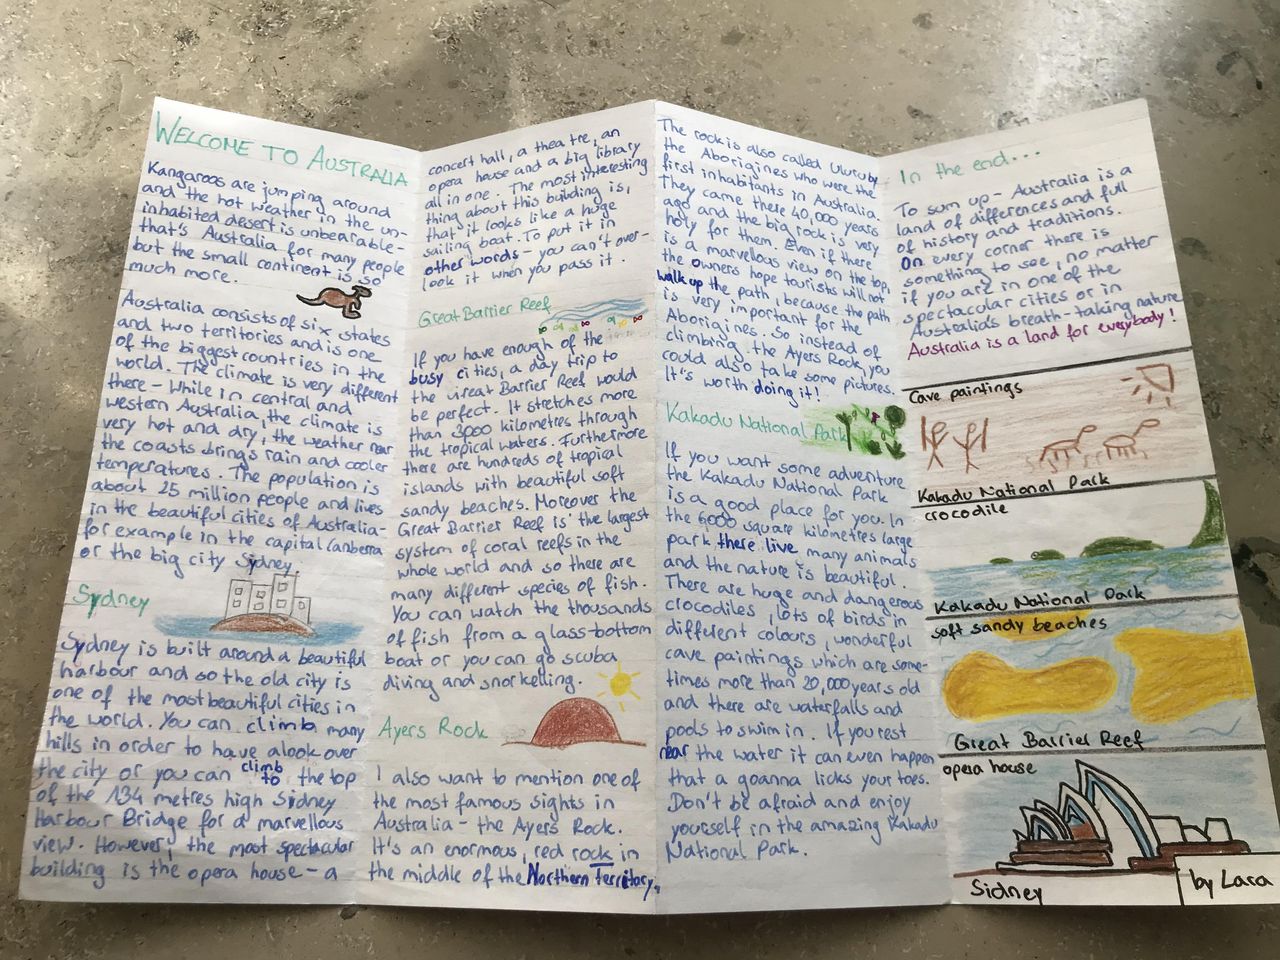 WELCOME TO AUSTRALIA
Kangaroos are jumping around
and the hot weather in the un-
inhabited desert is unbearable -
that's Australia for many people
but the small continent is so
much more.
Australia consists of six states
and two territories and is one
of the biggest countries in the
world. The climate is very different
there - While in central and
western Australia, the climate is
very hot and dry, the weather near
the coasts brings rain and cooler
temperatures. The population is
about 25 million people and lives
in the beautiful cities of Australia-
for example in the capital Canberra
or the big city Sydney.
Sydney
Sydney is built around a beautiful
harbour and so the old city is
one of the most beautiful cities in
the world. You can climb many
hills in order to have a look over
the city or you can climb to the top
of the 134 metres high Sidney
Harbour Bridge for a marvellous
view. However, the most spectacular
building is the opera house - a
concert hall, a theatre, an
opera house and a big library
all in one. The most interesting
thing about this building is,
that it looks like a huge
sailing boat. To put it in
other words - you can't over-
look it when you pass it.
Great Barrier Reef
If you have enough of the
busy cities, a day trip to
the Great Barrier Reef would
be perfect. It stretches more
than 3000 kilometres through
the tropical waters. Furthermore
there are hundreds of tropical
islands with beautiful soft
sandy beaches. Moreover the
Great Barrier Reef is the largest
system of coral reefs in the
whole world and so there are
many different species of fish.
You can watch the thousands
of fish from a glass-bottom
boat or you can go scuba
diving and snorkelling.
Ayers Rock
I also want to mention one of
the most famous sights in
Australia - the Ayers Rock.
It's an enormous, red rock in
the middle of the Northern Territory.
The rock is also called Uluru by
the Aborigines who were the
first inhabitants in Australia.
They came there 40,000 years
ago and the big rock is very
holy for them. Even if there
is a marvellous view on the top,
the owners hope tourists will not
walk up the path, because the path
is very important for the
Aborigines. So instead of
climbing the Ayers Rock, you
could also take some pictures.
It's worth doing it!
Kakadu National Park
If you want some adventure
the Kakadu National Park
is a good place for you. In
the 6000 square kilometres large
park there live many animals
and the nature is beautiful.
There are huge and dangerous
crocodiles, lots of birds in
different colours, wonderful
cave paintings which are some-
times more than 20,000 years old
and there are waterfalls and
pools to swim in. If you rest
near the water it can even happen
that a goanna licks your toes.
Don't be afraid and enjoy
yourself in the amazing Kakadu
National Park.
In the end...
To sum up - Australia is a
land of differences and full
of history and traditions.
On every corner there is
something to see, no matter
if you are in one of the
spectacular cities or in
Australia's breath-taking nature
Australia is a land for everybody!
Cave paintings
Kakadu National Park
crocodile
Kakadu National Park
soft sandy beaches
Great Barrier Reef
opera house
Sidney
by Lara